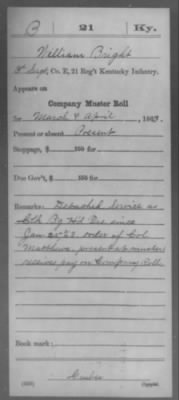 B | 21 | Ky.
William Bright
Sergt, Co. E, 21 Reg't Kentucky Infantry.
Appears on
Company Muster Roll
for March & April, 1863.
Present or absent Present
Stoppage, $ 100 for
Due Gov't, $ 100 for
Remarks: Detached Service as
Clk Bg Hd Qrs since
Jan 25/63 order of Col
Matthews, present at muster
receives pay on Company Roll
Book mark:
(358)
Copyist.